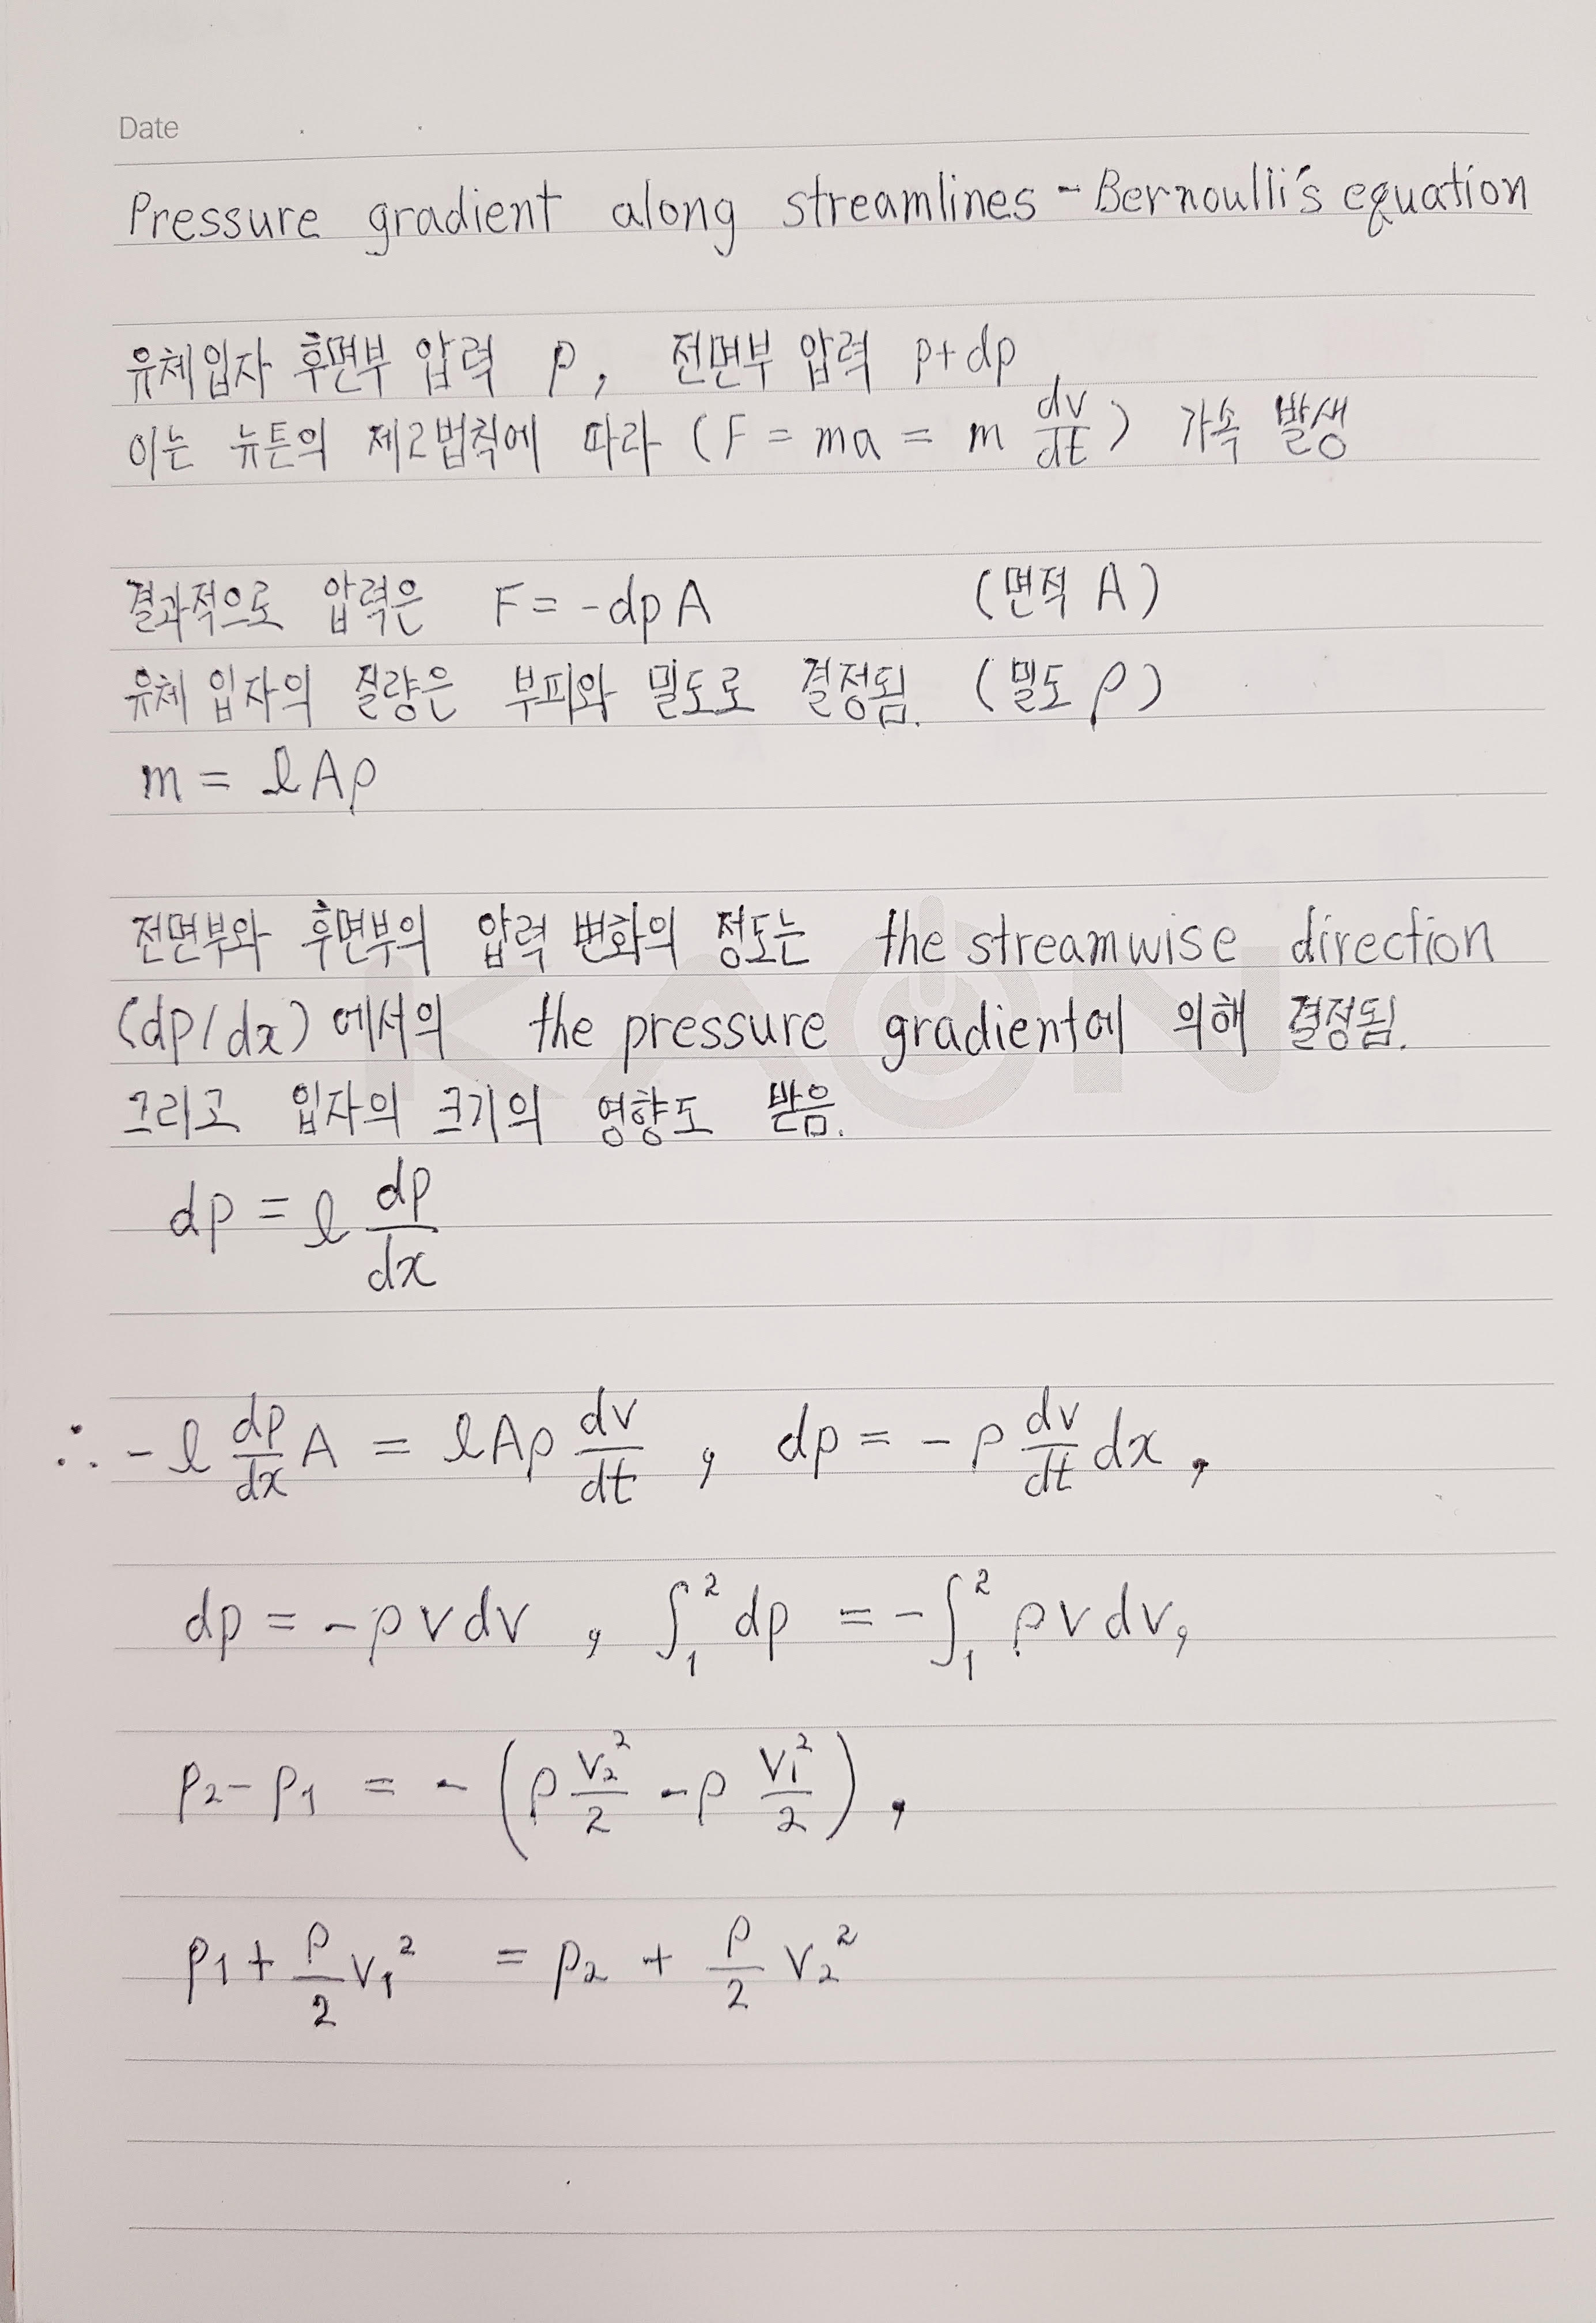 Date
Pressure gradient along streamlines - Bernoulli's equation
유체입자 후면부 압력 p, 전면부 압력 p+dp
이는 뉴튼의 제2법칙에 따라 (F = ma = m dv/dt) 가속 발생
결과적으로 압력은 F = -dpA (면적 A)
유체 입자의 질량은 부피와 밀도로 결정됨. (밀도 ρ)
m = lAρ
전면부와 후면부의 압력 변화의 정도는 the streamwise direction
(dp/dx)에서의 the pressure gradient에 의해 결정됨.
그리고 입자의 크기의 영향도 받음.
dp = l dp/dx
∴ -l dp/dx A = lAρ dv/dt , dp = -ρ dv/dt dx,
dp = -ρvdv , ∫₁² dp = -∫₁² ρvdv,
p₂ - p₁ = -(ρ v₂²/2 - ρ v₁²/2),
p₁ + ρ/2 v₁² = p₂ + ρ/2 v₂²
KAON